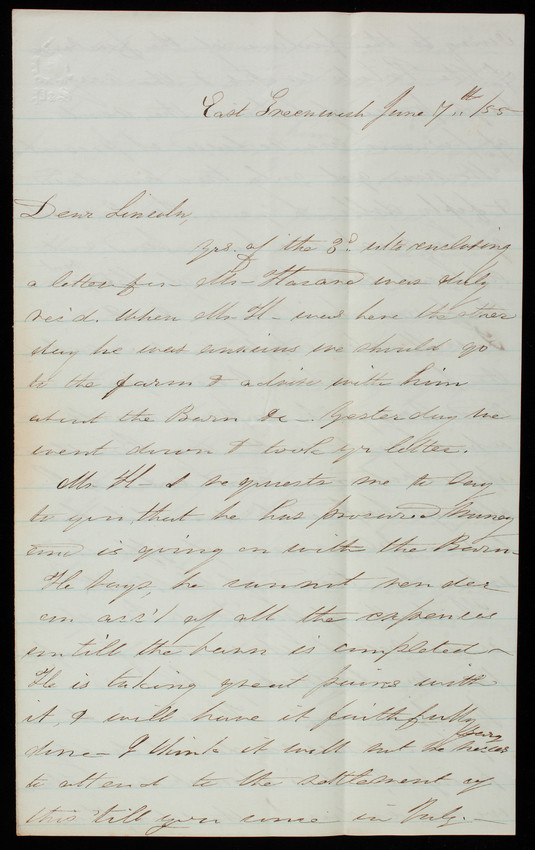 East Greenwich June 7th /55
Dear Lincoln,
Yrs. of the 3d. inclosing
a letter for Mr Hazard was duly
rec'd. When Mr. H- was here the other
day he was anxious we should go
to the farm & advise with him
about the Barn &c - Yesterday we
went down & took yr letter.
Mr H- requests me to say
to you that he has procured Money
and is going on with the Barn-
He Says, he cannot render
an acc't of all the expenses
untill the barn is completed-
He is taking great pains with
it, & will have it faithfully
done - I think it will not be necessary
to attend to the settlement of
this till you come in July.-